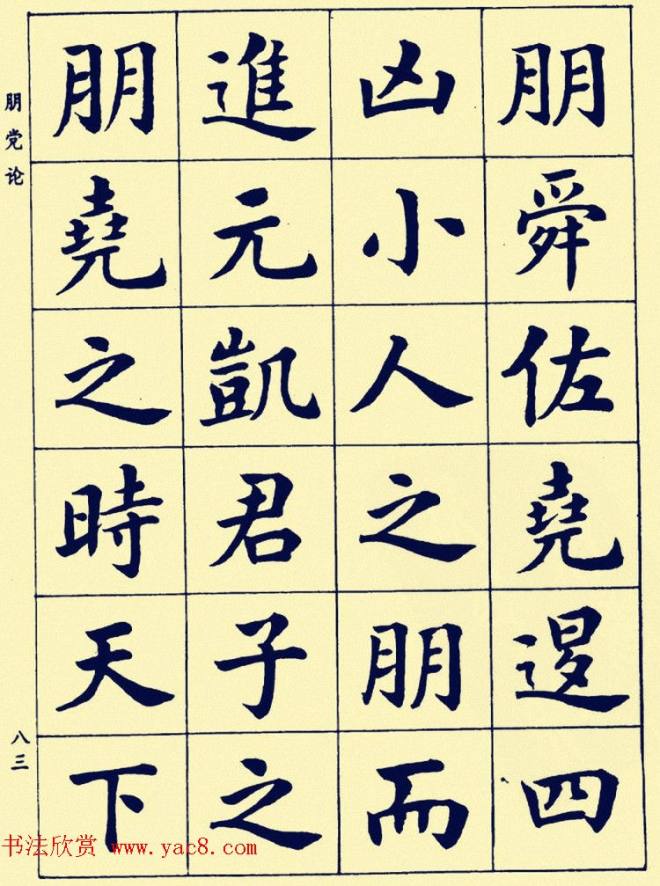 朋舜佐堯退四
凶小人之朋而
進元凱君子之
朋堯之時天下
朋党论
八三
书法欣赏 www.yac8.com